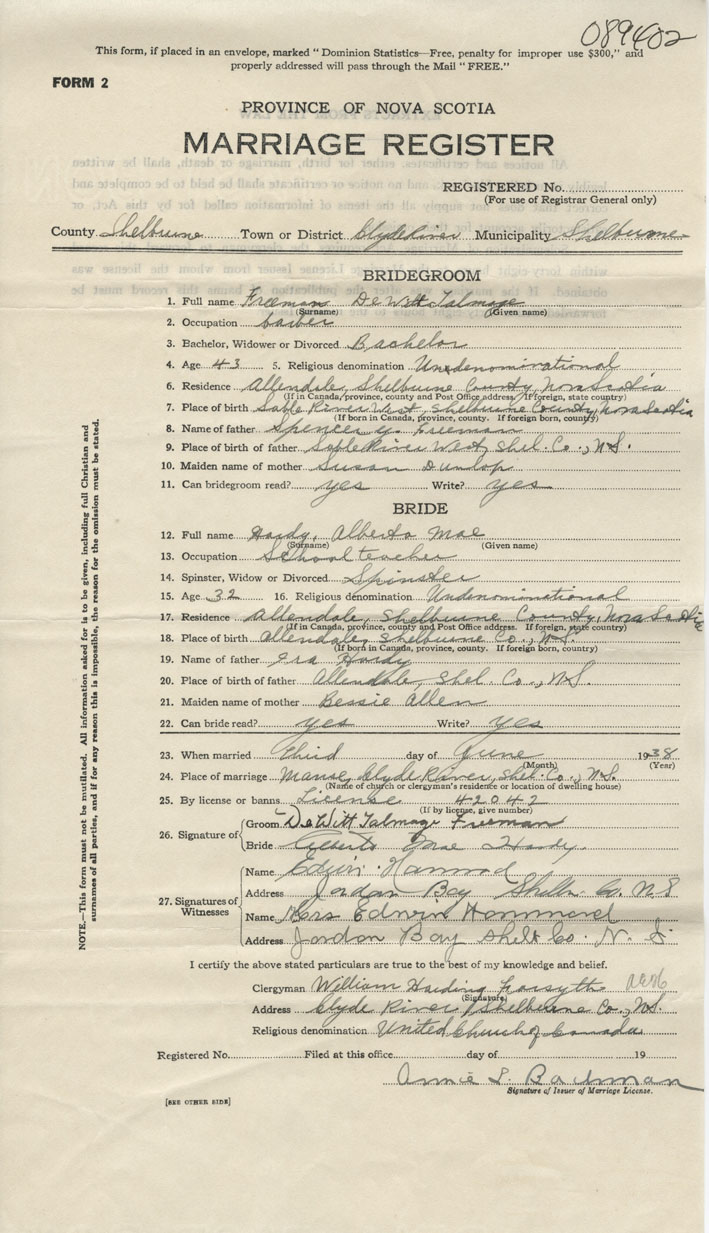 089402
This form, if placed in an envelope, marked "Dominion Statistics—Free, penalty for improper use $300," and
properly addressed will pass through the Mail "FREE."
FORM 2
PROVINCE OF NOVA SCOTIA
MARRIAGE REGISTER
REGISTERED No.
(For use of Registrar General only)
County Shelburne Town or District Clyde River Municipality Shelburne
BRIDEGROOM
1. Full name Freeman DeWitt Talmage
(Surname) (Given name)
2. Occupation barber
3. Bachelor, Widower or Divorced Bachelor
4. Age 43 5. Religious denomination Undenominational
6. Residence Allendale, Shelburne County, Nova Scotia
(If in Canada, province, county and Post Office address. If foreign, state country)
7. Place of birth Sable River West, Shelburne County, Nova Scotia
(If born in Canada, province, county. If foreign born, country)
8. Name of father Spencer Freeman
9. Place of birth of father Sable River West, Shel. Co., N.S.
10. Maiden name of mother Susan Dunlop
11. Can bridegroom read? yes Write? yes
BRIDE
12. Full name Hardy, Alberta Mae
(Surname) (Given name)
13. Occupation School teacher
14. Spinster, Widow or Divorced Spinster
15. Age 32 16. Religious denomination Undenominational
17. Residence Allendale, Shelburne County, Nova Scotia
(If in Canada, province, county and Post Office address. If foreign, state country)
18. Place of birth Allendale, Shelburne Co., N.S.
(If born in Canada, province, county. If foreign born, country)
19. Name of father Ira Hardy
20. Place of birth of father Allendale, Shel. Co., N.S.
21. Maiden name of mother Bessie Allen
22. Can bride read? yes Write? yes
23. When married Third day of June 1938
(Month) (Year)
24. Place of marriage Manse, Clyde River, Shel. Co., N.S.
(Name of church or clergyman's residence or location of dwelling house)
25. By license or banns License 42042
(If by license, give number)
26. Signature of
Groom DeWitt Talmage Freeman
Bride Alberta Mae Hardy
27. Signatures of Witnesses
Name Edwin Hammond
Address Jordan Bay Shelb. Co. N S
Name Mrs Edwin Hammond
Address Jordan Bay Shelb Co. N. S
I certify the above stated particulars are true to the best of my knowledge and belief.
Clergyman William Harding Forsyth
(Signature)
Address Clyde River, Shelburne Co., N.S.
Religious denomination United Church of Canada
Registered No. Filed at this office day of 19
Annie L. Bachman
Signature of Issuer of Marriage License.
[SEE OTHER SIDE]
NOTE.—This form must not be mutilated. All information asked for is to be given, including full Christian and
surnames of all parties, and if for any reason this is impossible, the reason for the omission must be stated.